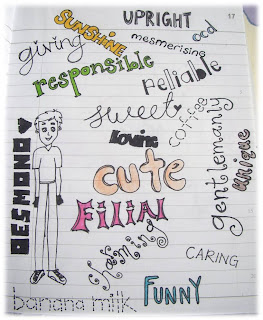 UPRIGHT
17
SUNSHINE
ocd
giving
mesmerising
responsible
reliable
sweet
coffee
Loving
gentlemanly
unique
cute
DESMOND
FILIAL
charming
CARING
FUNNY
banana milk